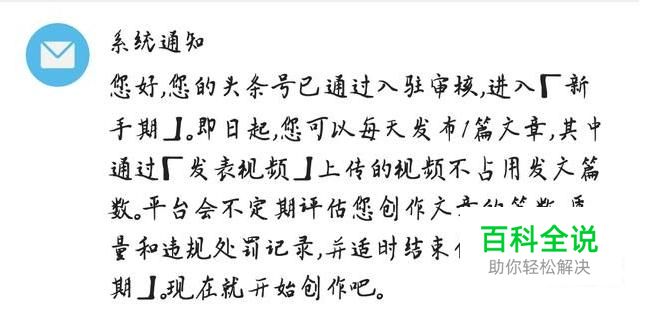 系统通知
您好,您的头条号已通过入驻审核,进入「新
手期」。即日起,您可以每天发布1篇文章,其中
通过「发表视频」上传的视频不占用发文篇
数。平台会不定期评估您创作文章的篇数、质
量和违规处罚记录,并适时结束
期」。现在就开始创作吧。
百科全说
助你轻松解决